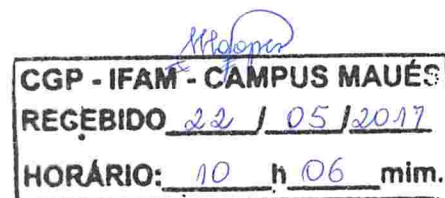 CGP - IFAM - CAMPUS MAUÉS
REGEBIDO 22 / 05 / 2017
HORÁRIO: 10 h 06 mim.